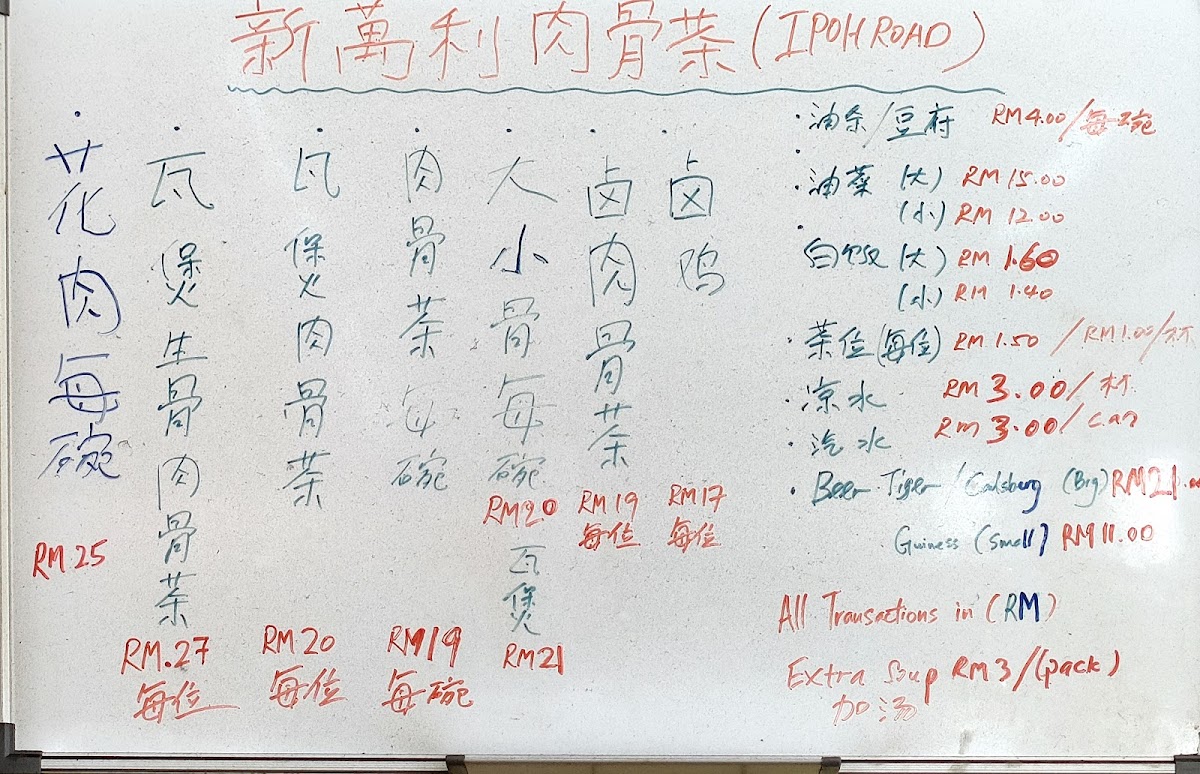 新萬利肉骨茶(IPOH ROAD)
花肉每碗
RM 25
瓦煲生骨肉骨茶
RM.27
每位
瓦煲肉骨茶
RM 20
每位
肉骨茶每碗
RM19
每碗
大小骨每碗
RM20
瓦煲
RM21
卤肉骨茶
RM 19
每位
卤鸡
RM17
每位
油条/豆府 RM 4.00/每碗
油菜 (大) RM 15.00
(小) RM 12.00
白饭 (大) RM 1.60
(小) RM 1.40
茶位(每位) RM 1.50 / RM1.00/杯
凉水 RM 3.00/杯
汽水 RM 3.00/can
Beer Tiger / Calsburg (Big) RM21.00
Guiness (Small) RM 11.00
All Transactions in (RM)
Extra Soup RM 3/(pack)
加汤